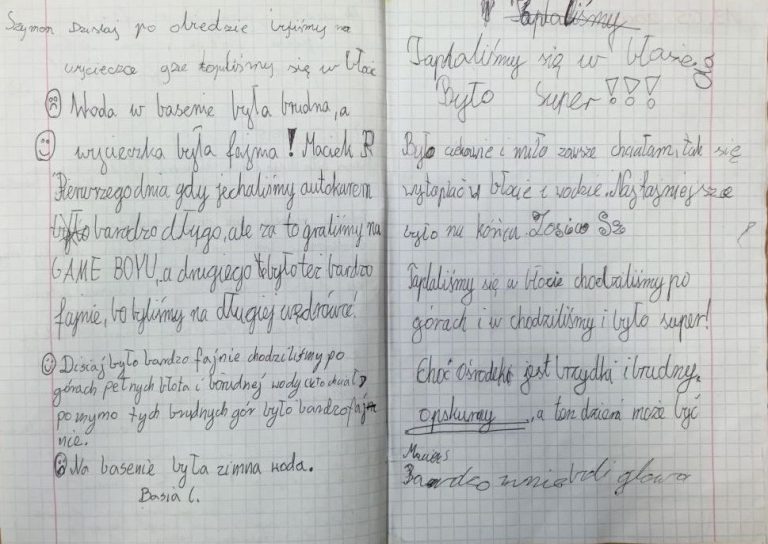 Szymon Dzisiaj po obiedzie byliśmy na
wycieczce gdzie topiliśmy się w błocie
Woda w basenie była brudna, a
wycieczka była fajna! Maciek R
Pierwrzego dnia gdy jechaliśmy autokarem
było bardzo długo, ale za to graliśmy na
GAME BOYU, a drugiego było też bardzo
fajnie, bo byliśmy na długiej wędrówce.
Dzisiaj było bardzo fajnie chodziliśmy po
górach pełnych błota i brudnej wody
pomymo tych brudnych gór było bardzo faj
nie.
Na basenie była zimna woda.
Basia C.
Taplaliśmy
Taplaliśmy się w błocie
Było Super!!!
Było ciekawie i miło zawsze chciałam tak się
wytaplać w błocie i wodzie. Najfajniejsze
było na końcu. Zosia Sz
Taplaliśmy się w błocie chodzaliśmy po
górach i w chodziliśmy i było super!
Choć Ośrodek jest brzydki i brudny,
opskurny, a ten dzień może być
Maciej S
Bardzo mnie boli głowa